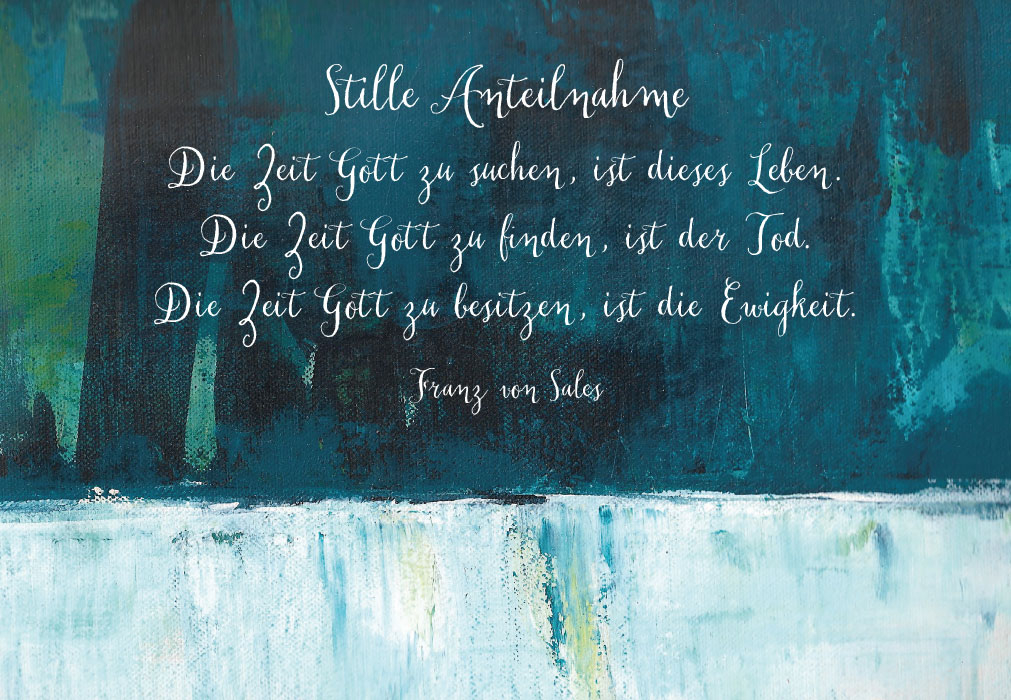 Stille Anteilnahme
Die Zeit Gott zu suchen, ist dieses Leben.
Die Zeit Gott zu finden, ist der Tod.
Die Zeit Gott zu besitzen, ist die Ewigkeit.
Franz von Sales